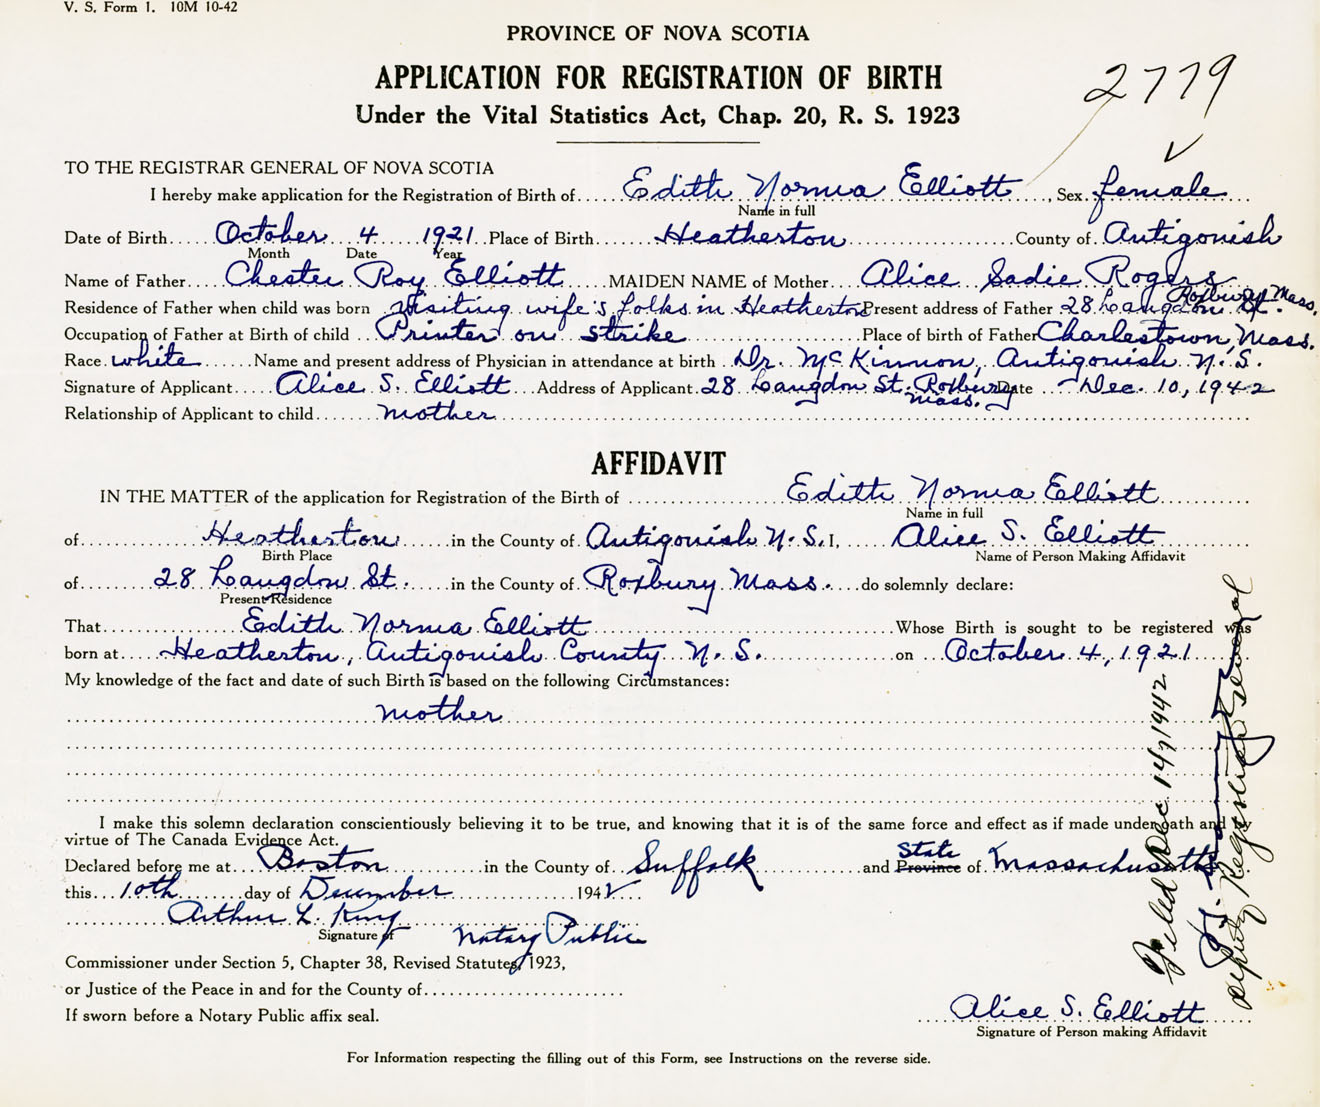 V. S. Form 1. 10M 10-42
PROVINCE OF NOVA SCOTIA
APPLICATION FOR REGISTRATION OF BIRTH
2779
Under the Vital Statistics Act, Chap. 20, R. S. 1923
TO THE REGISTRAR GENERAL OF NOVA SCOTIA
I hereby make application for the Registration of Birth of Edith Norma Elliott, Sex female
Name in full
Date of Birth October 4 1921 Place of Birth Heatherton County of Antigonish
Month Date Year
Name of Father Chester Roy Elliott MAIDEN NAME of Mother Alice Sadie Rogers
Residence of Father when child was born Visiting wife's folks in Heatherton Present address of Father 28 Langdon St. Roxbury Mass.
Occupation of Father at Birth of child Printer on strike Place of birth of Father Charlestown, Mass.
Race white Name and present address of Physician in attendance at birth Dr. McKinnon, Antigonish N.S.
Signature of Applicant Alice S. Elliott Address of Applicant 28 Langdon St. Roxbury Mass. Date Dec. 10, 1942
Relationship of Applicant to child mother
AFFIDAVIT
IN THE MATTER of the application for Registration of the Birth of Edith Norma Elliott
Name in full
of Heatherton in the County of Antigonish N.S. I, Alice S. Elliott
Birth Place Name of Person Making Affidavit
of 28 Langdon St. in the County of Roxbury Mass. do solemnly declare:
Present Residence
That Edith Norma Elliott Whose Birth is sought to be registered was
born at Heatherton, Antigonish County N.S. on October 4, 1921
My knowledge of the fact and date of such Birth is based on the following Circumstances:
mother
I make this solemn declaration conscientiously believing it to be true, and knowing that it is of the same force and effect as if made under oath and by
virtue of The Canada Evidence Act.
State
Declared before me at Boston in the County of Suffolk and Province of Massachusetts
this 10th day of December 1942
Arthur L. King
Signature of Notary Public
Commissioner under Section 5, Chapter 38, Revised Statutes, 1923,
or Justice of the Peace in and for the County of
If sworn before a Notary Public affix seal.
Alice S. Elliott
Signature of Person making Affidavit
For Information respecting the filling out of this Form, see Instructions on the reverse side.
Filed Dec 14, 1942
Deputy Registrar General